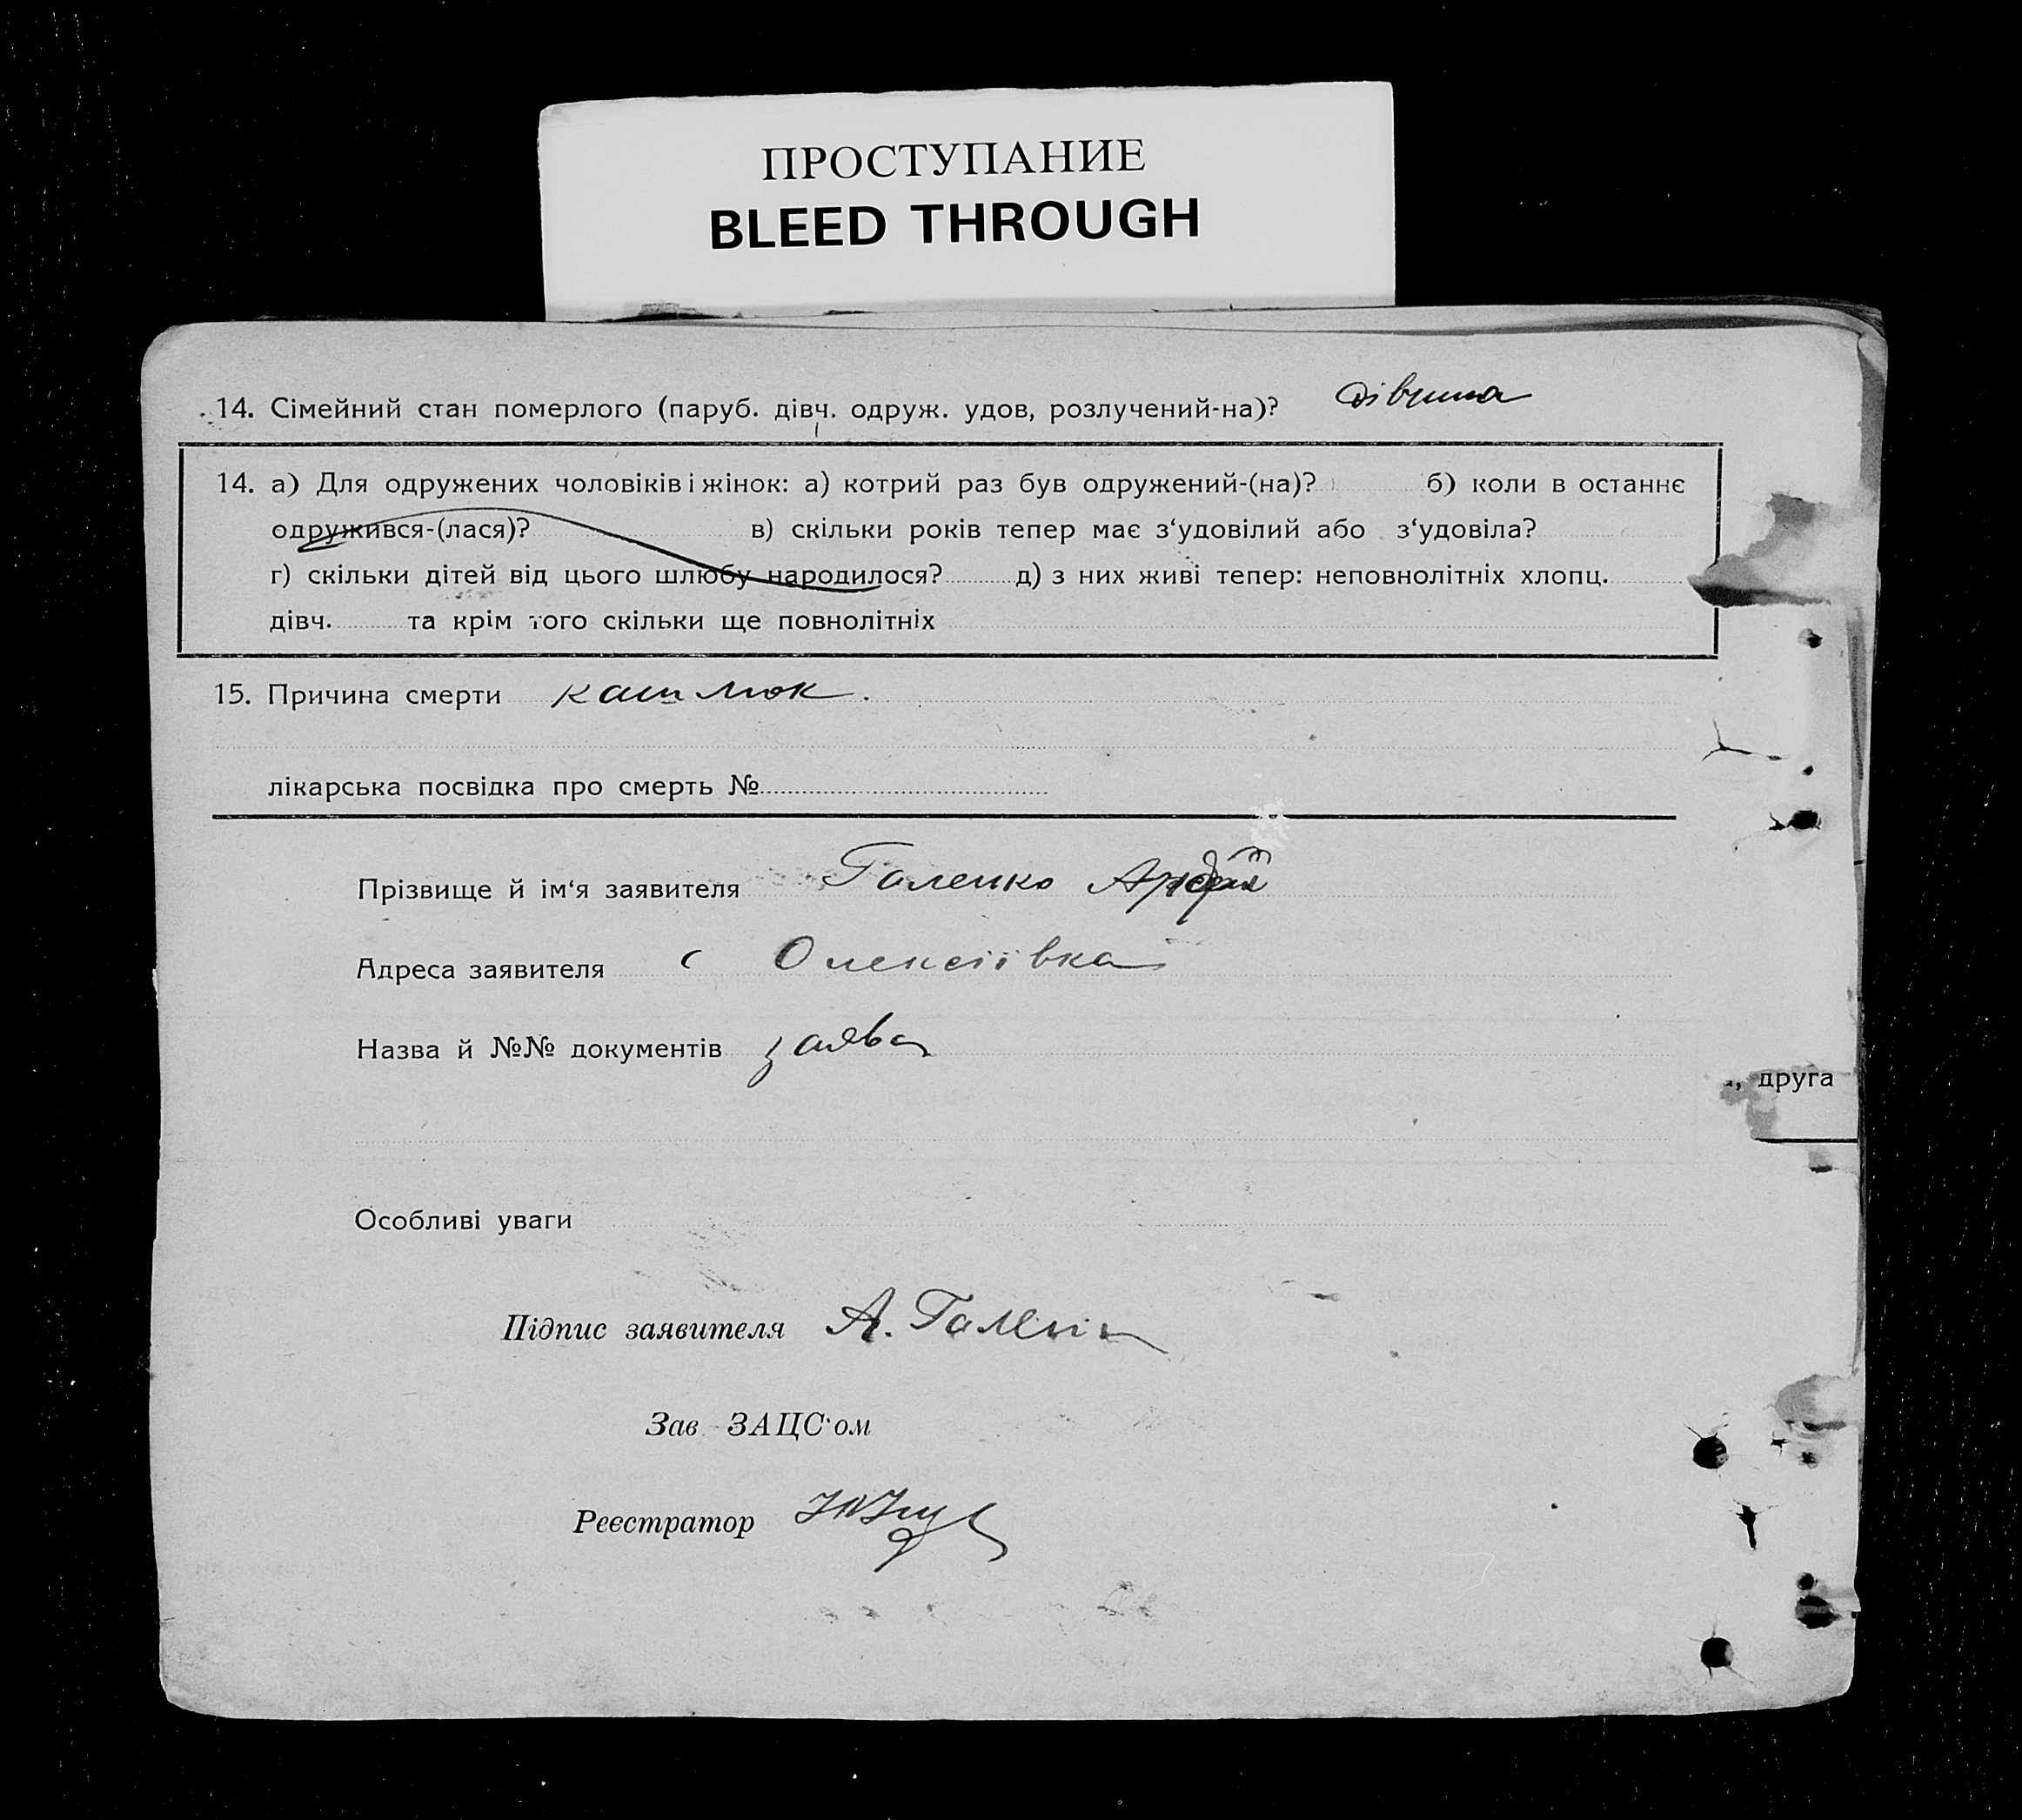 ПРОСТУПАНИЕ
BLEED THROUGH
14. Сімейний стан померлого (паруб. дівч. одруж. удов, розлучений-на)? дівчина
14. а) Для одружених чоловіків і жінок: а) котрий раз був одружений-(на)? б) коли в останнє
одружився-(лася)? в) скільки років тепер має з‘удовілий або з‘удовіла?
г) скільки дітей від цього шлюбу народилося? д) з них живі тепер: неповнолітніх хлопц.
дівч. та крім того скільки ще повнолітніх
15. Причина смерти кашлюк.
лікарська посвідка про смерть №
Прізвище й ім‘я заявителя Галенко
Адреса заявителя с Олексіївка
Назва й №№ документів заява
, друга
Особливі уваги
Підпис заявителя А. Галенко
Зав ЗАЦС‘ом
Реєстратор